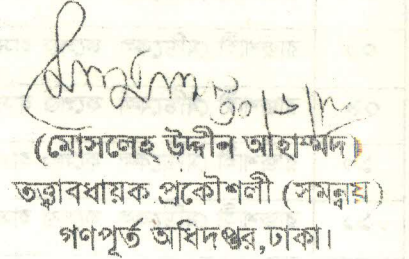 (মোসলেহ্ উদ্দীন আহাম্মদ)
তত্ত্বাবধায়ক প্রকৌশলী (সমন্বয়)
গণপূর্ত অধিদপ্তর,ঢাকা।